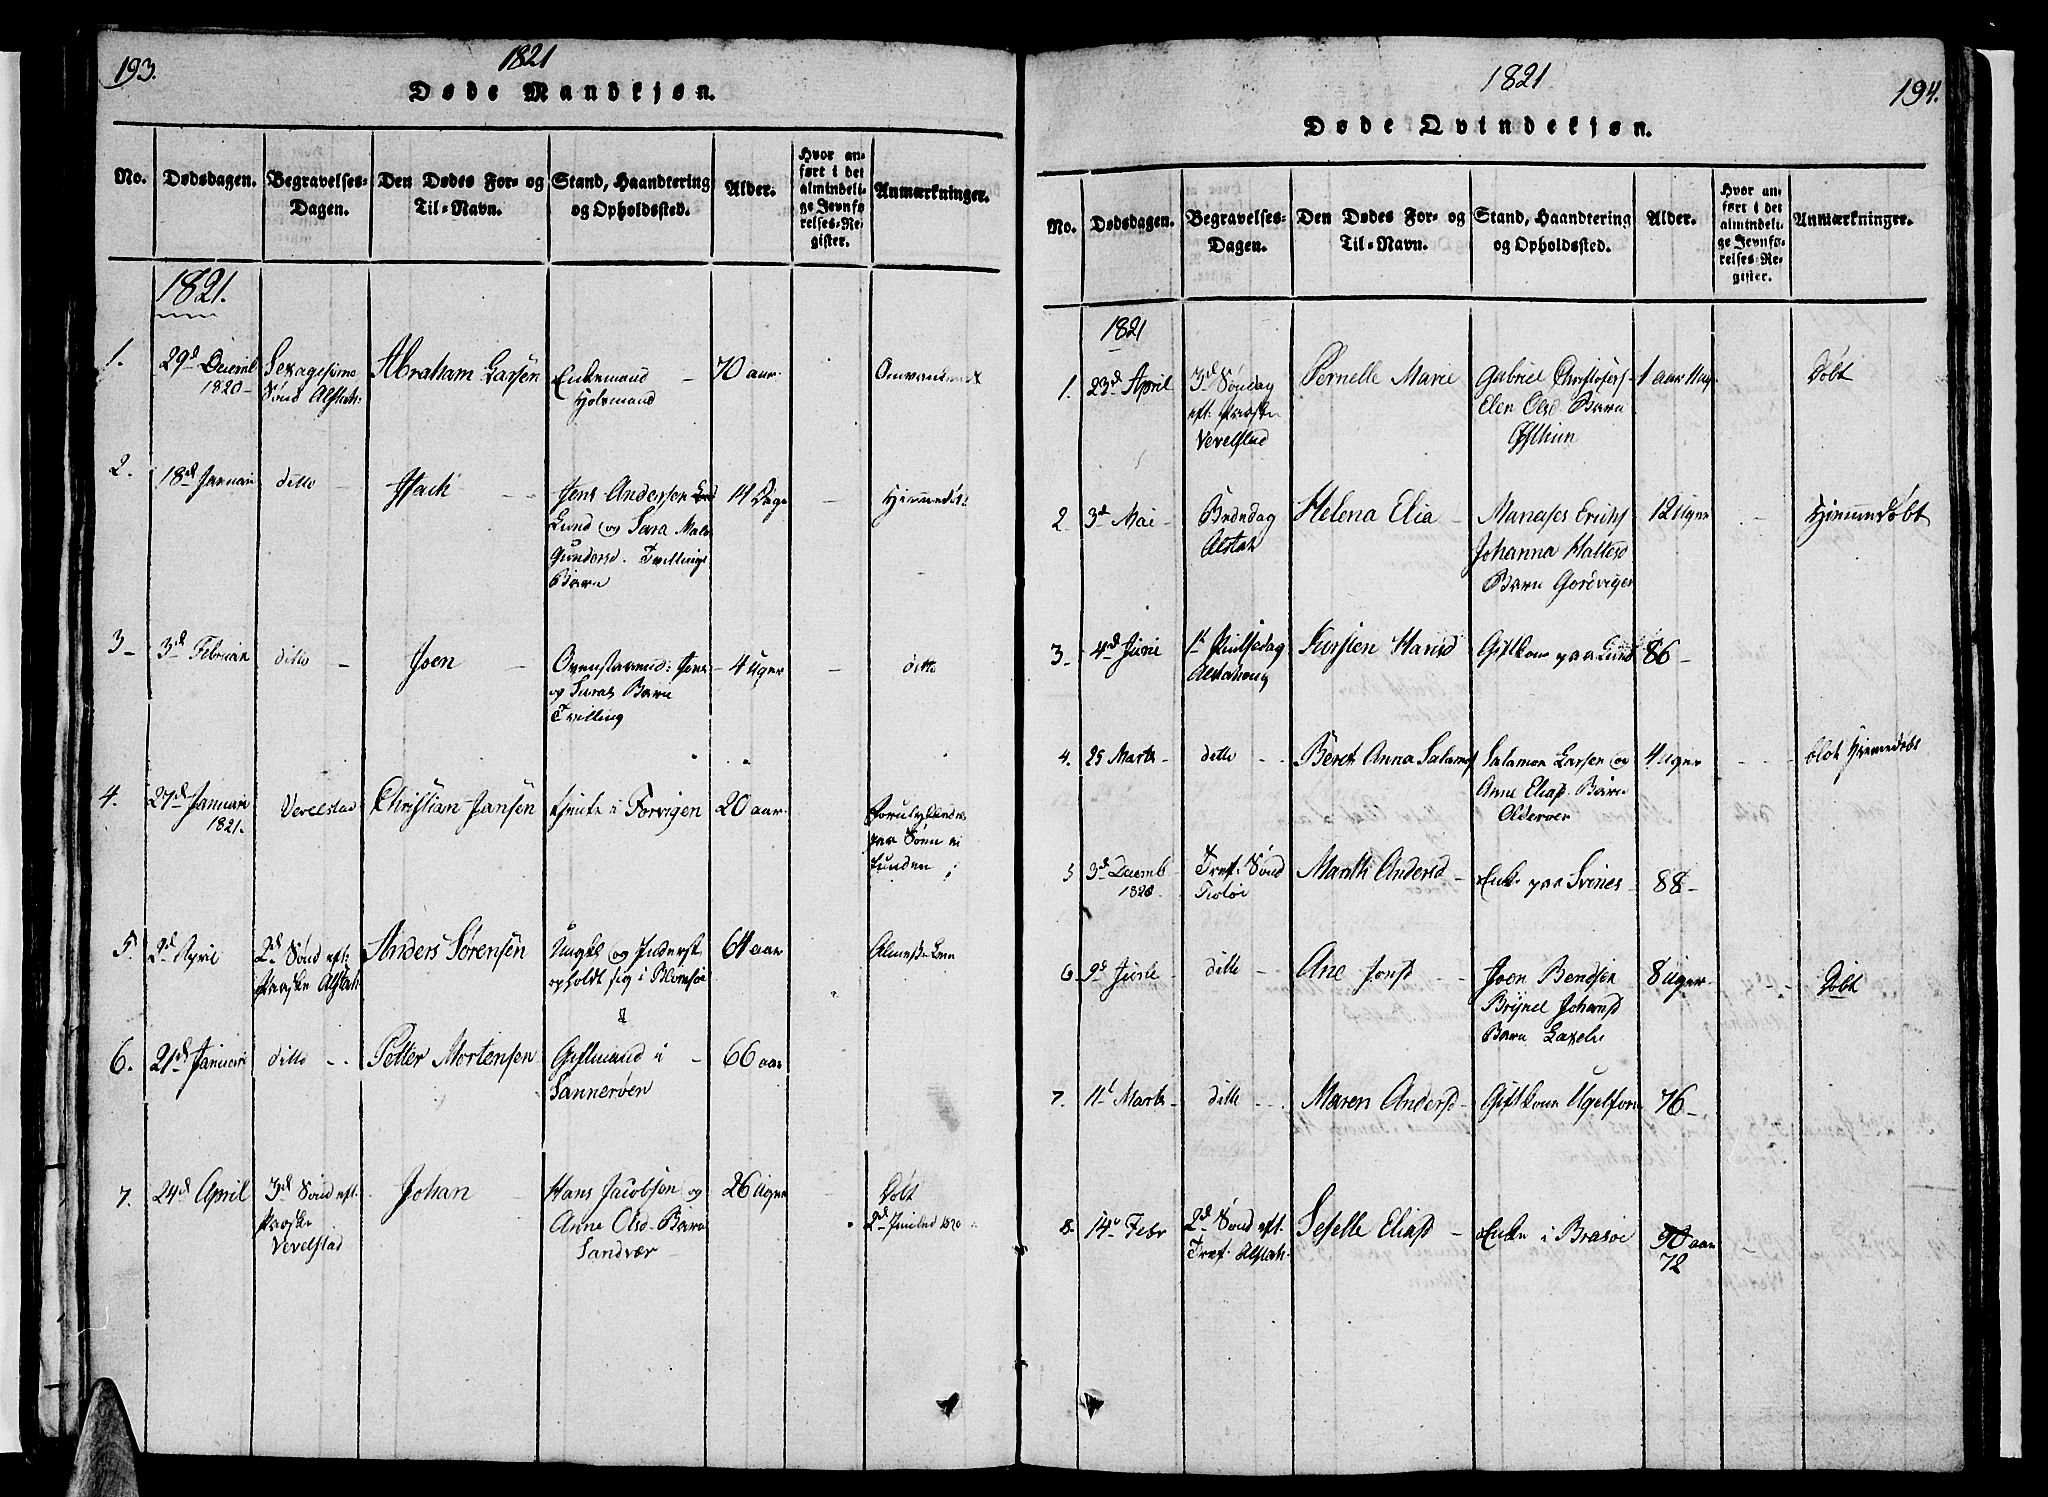 193.
1821
Døde Mandkjøn.
No.
Dødsdagen.
Begravelses-
Dagen.
Den Dødes For- og
Til-Navn.
Stand, Haandtering
og Opholdssted.
Alder.
Hvor an-
ført i det
almindeli-
ge Jevnfø-
relses-Re-
gister.
Anmærkninger.
1821.
1.
29d Decemb
1820
Sexagesima
Sønd Alstah:
Abraham Larsen
Enkemand
70 aar
2.
18d Januari
ditto
Isach
Jens Andersen
Lund og Sara
Gundersd. Tvillinge
Barn
14 Dage
Hjemmedøbt
3
3d Februari
ditto
Joen
Ovenstaaende: Jens
og Saras Barn
Tvilling
4 Uger
ditto
4.
27d Januari
1821.
Vevelstad
Christian Jansen
tjente i Forvigen
20 aar
paa Søen ei
funden
5.
2d April
2d Sønd eft:
Paaske Alstah
Anders Sørensen
Ungkl og Inderst
opholdt sig i Blomsøe
64 aar
Almisse Lem
6.
21d Januari
ditto
Petter Mortensen
Giftmand i
Sannerøen
66 aar
7.
24d April
3d Sønd eft.
Paaske
Vevelstad
Johan
Hans Jacobsen og
Anne Olsd. Barn
Sandvær
26 Uger
Døbt
1820
194.
1821
Døde Qvindekjøn.
No.
Dødsdagen.
Begravelses-
Dagen.
Den Dødes For- og
Til-Navn.
Stand, Haandtering
og Opholdssted.
Alder.
Hvor an-
ført i det
almindeli-
ge Jevnfø-
relses-Re-
gister.
Anmærkninger.
1821
1.
23d April
3d Søndag
eft. Paaske
Vevelstad
Pernelle Marie
Gabriel Christofers
Elen Olsd. Barn
1 aar
Døbt
2
3d Mai
Bededag
Alstah
Helena Elia
Manases Erichs
Johanna
Barn
12 Uger
Hjemmedøbt
3
4d Juni
1t Pintsedag
Alstahoug
Kirsten Hansd
Giftkone paa Lund
86
4.
25 Marts
ditto
Beret Anna Salams
Salamon Larsen og
Anne Eliasd. Barn
Olderøer
4 Uger
Hjemmedøbt
5
3d Decemb
1820.
Tref: Sønd
Tiøtøe
Marith Andersd
Enke paa Svines
88
6.
9d Juni
ditto
Ane Jonsd
Joen Bendsen
Johansd
Barn
8 Uger
Døbt
7.
11t Marts
ditto
Maren Andersd
Giftkone
76
8.
14de Febr
2d Sønd eft.
Tref. Alstah:
Seselle Eliasd
Enke i Brasøe
90 aar
72